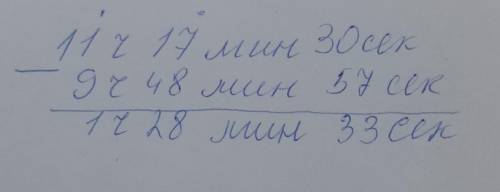 11 ч 17 мин 30 сек
— 9 ч 48 мин 57 сек
1 ч 28 мин 33 сек